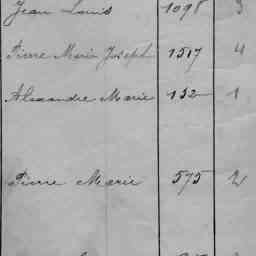 Jean Louis 1098 3
Pierre Marie Joseph 1517 4
Alexandre Marie 132 1
Pierre Marie 575 2